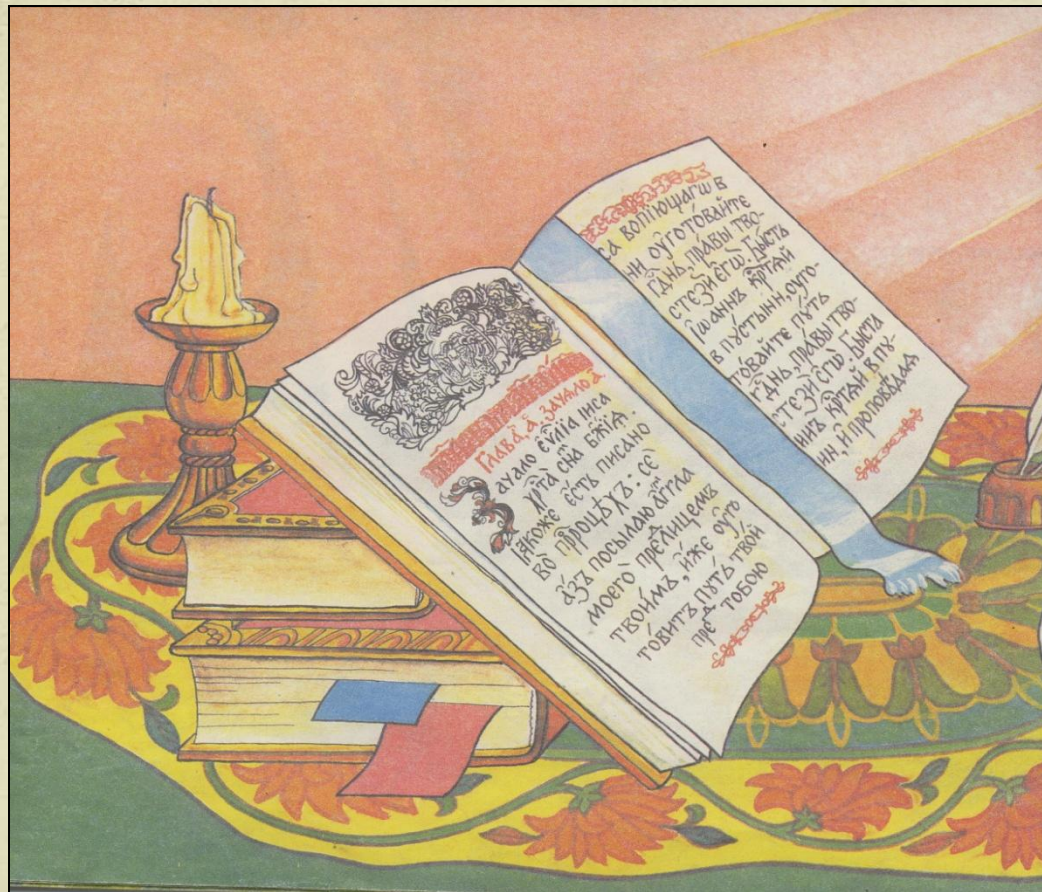 Глава̀, а҃. Зачало а҃
Начало є҆ѵ҃лїа І҆и҃са
хр҃та̀ сн҃а бж҃їѧ.
Ꙗкоже є҆сть писано
во прⷪ҇роцѣхъ: сѐ
а҆́зъ посылаю а҆́гг҃ла
моего̀ преⷣлицемъ
твои́мъ, и҆́же оуго
товитъ пꙋ́ть твой
преⷣ тобою
са вопїющагѡ в
ни оуго́товайте
гдⷭ҇нь, пра́вы тво-
стезѝ є҆гѡ̀. Бы́сть
Іѡаннъ кр҃тай
в пꙋсты́ни, оуго-
то́вайте пꙋ́ть
гдⷭ҇нь, пра́вы тво-
стезѝ є҆гѡ̀. Бы́сть
ннъ кр҃тай в пꙋ-
ни, и҆ проповѣ́даа